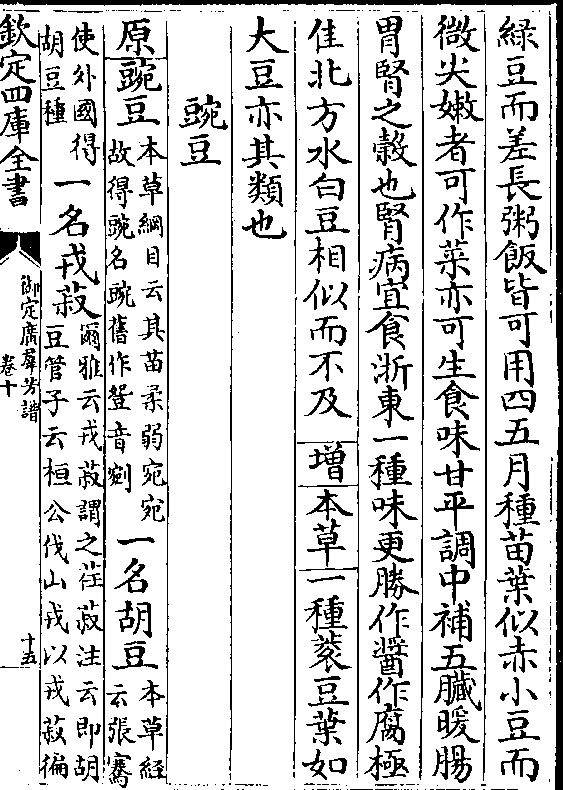 綠豆而差長粥飯皆可用四五月種苗葉似赤小豆而
微尖嫩者可作菜亦可生食味甘平調中補五臟暖腸
胃腎之穀也腎病宜食浙東一種味更勝作醬作腐極
佳北方水白豆相似而不及 增 本草 一種蔉豆葉如
大豆亦其類也
豌豆
原 豌豆 本草綱目云其苗柔弱宛宛
故得豌名豌舊作䝁音剜 一名胡豆 本草經
云張騫
使外國得
胡豆種 一名戎菽 爾雅云戎菽謂之荏菽注云即胡
豆管子云桓公伐山戎以戎菽徧
欽定四庫全書
御定廣羣芳譜
卷十
十五